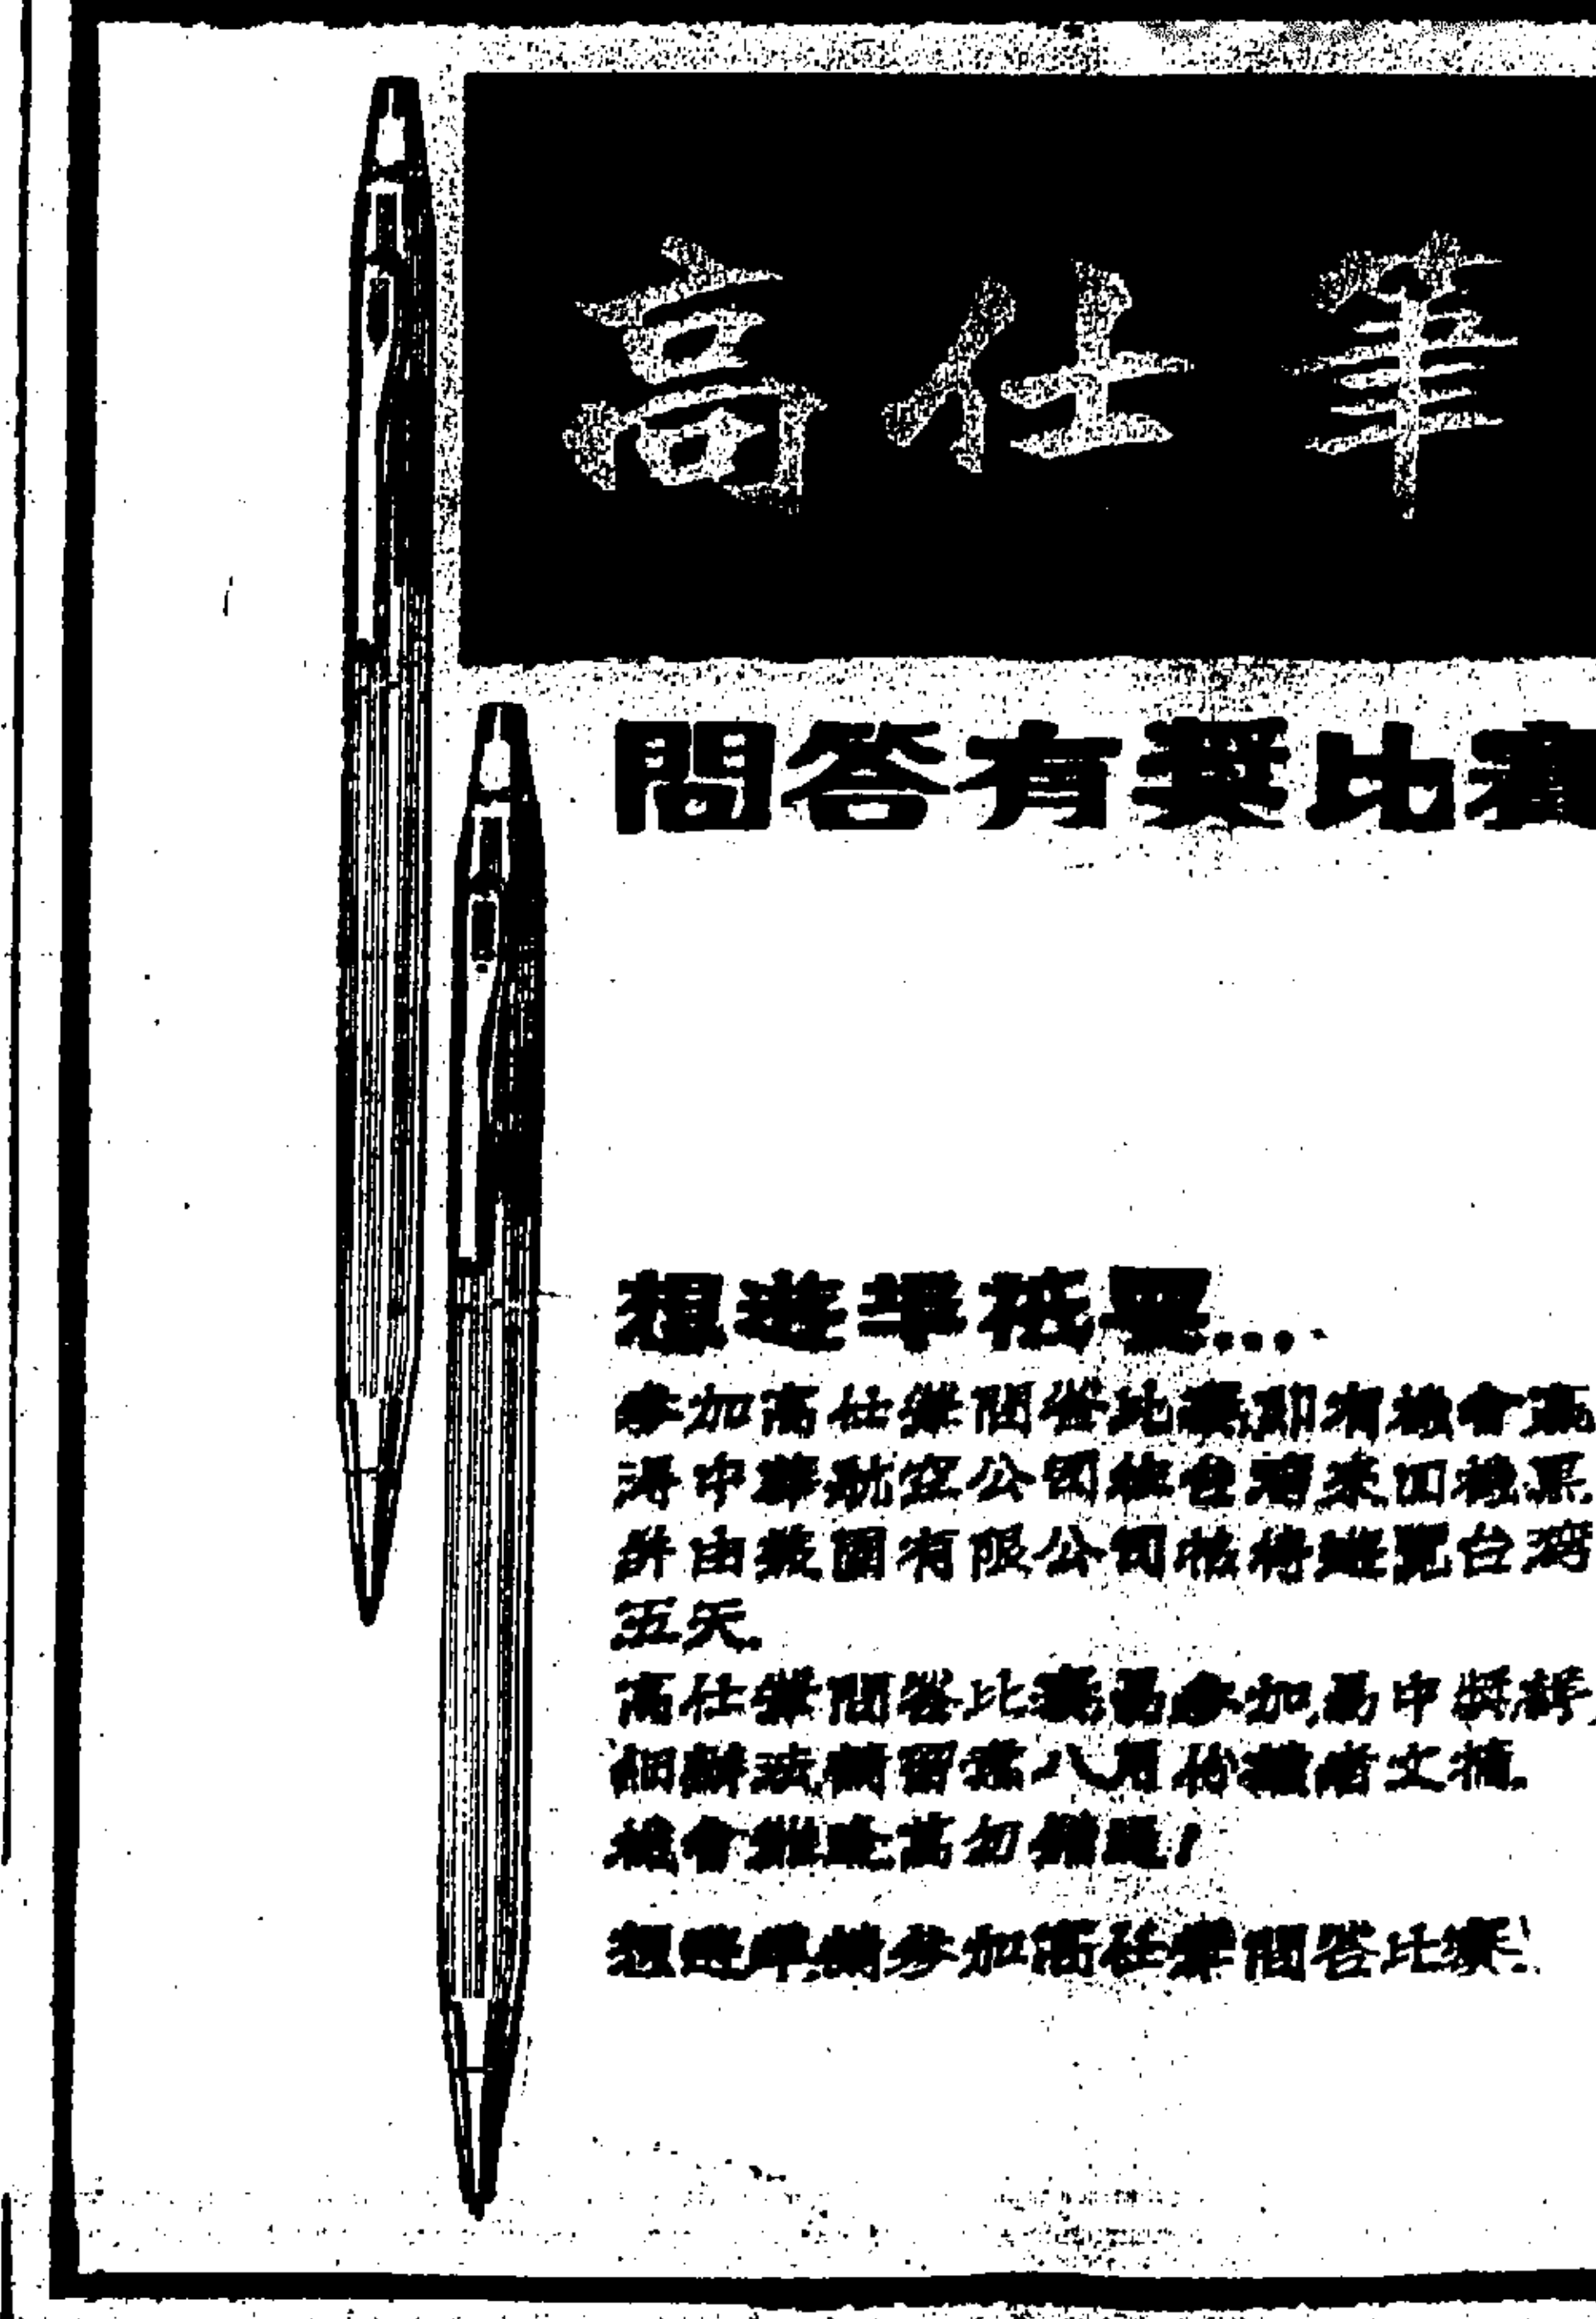 高仕筆
問答有獎比賽
想遊埠祇要...
參加高仕筆問答比賽,即有機會贏
得中華航空公司往台灣來回機票,
并由 有限公司招待遊覽台灣
五天.
高仕筆問答比賽易參加,易中獎,詳
細辦法請留意八月份讀者文摘.
機會難逢萬勿錯過!
想遊埠,請參加高仕筆問答比賽!